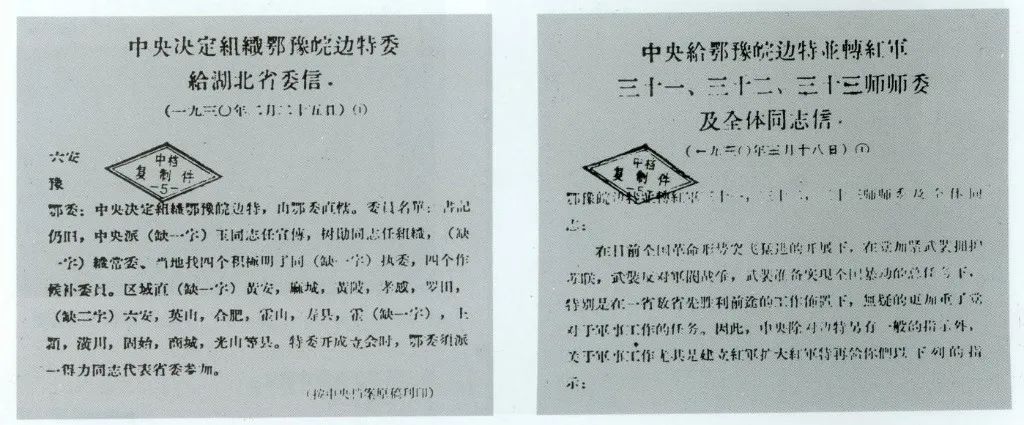 中央决定组織鄂豫皖边特委
給湖北省委信.
(一九三〇年二月二十五日)①
六安
豫
中档
复制件
-5-
鄂委：中央决定組織鄂豫皖边特，由鄂委直轄。委員名單：書記
仍旧，中央派（缺一字）玉同志任宣傳，树勋同志任組織，（缺
一字）織常委、当地找四个积極明了同（缺一字）执委，四个作
候补委員。区域直（缺一字）黄安，麻城，黄陂，孝感，罗田，
（缺二字）六安，英山，合肥，霍山，寿县，霍（缺一字），上
潁，潢川，固始，商城，光山等县。特委开成立会时，鄂委須派
一得力同志代表省委参加。
(按中央档案原稿刊印)
中央給鄂豫皖边特並轉紅軍
三十一、三十二、三十三师师委
及全体同志信.
(一九三〇年三月十八日)①
中档
复制件
-5-
鄂豫皖边特並轉紅軍三十一、三十二、三十三师师委及全体同
志：
在目前全国革命形势突飞猛進的开展下，在党加緊武装拥护
苏联，武装反对軍閥战争，武装准备实現全国暴动的总任务下，
特别是在一省数省先胜利前途的工作佈置下，無疑的更加重了党
对于軍事工作的任务。因此，中央除对边特另有一般的指示外，
关于軍事工作尤其是建立紅軍扩大紅軍特再給你們以下列的指
示：